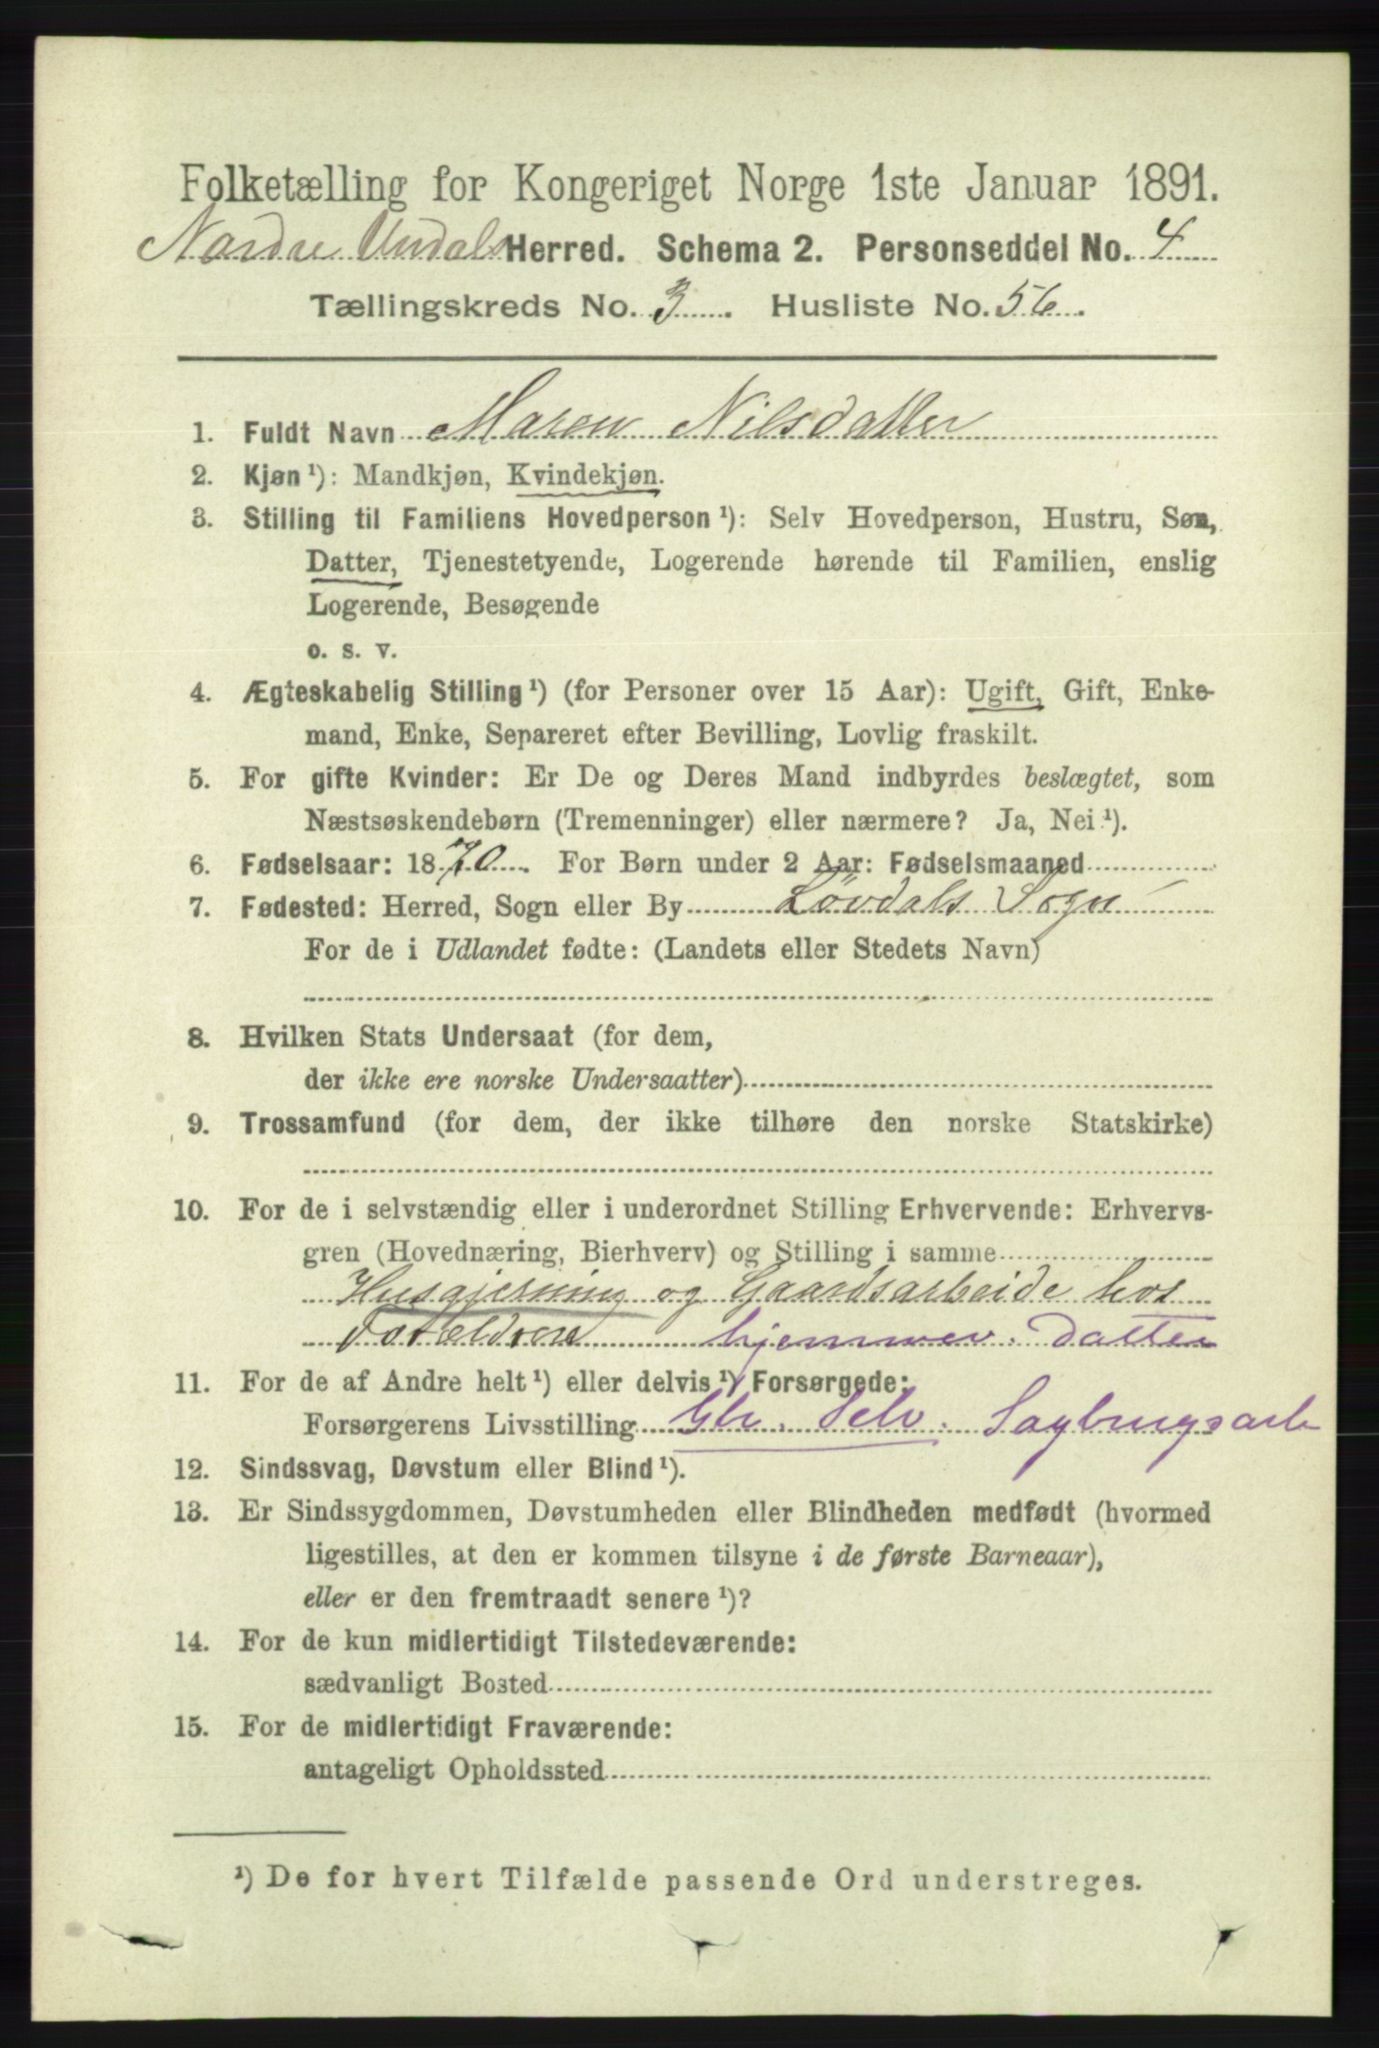 Folketælling for Kongeriget Norge 1ste Januar 1891.
Nordre Undals Herred. Schema 2. Personseddel No. 4
Tællingskreds No. 3. Husliste No. 56.
1. Fuldt Navn Maren Nilsdatter
2. Kjøn ¹): Mandkjøn, Kvindekjøn.
3. Stilling til Familiens Hovedperson ¹): Selv Hovedperson, Hustru, Søn,
Datter, Tjenestetyende, Logerende hørende til Familien, enslig
Logerende, Besøgende
o. s. v.
4. Ægteskabelig Stilling ¹) (for Personer over 15 Aar): Ugift, Gift, Enke-
mand, Enke, Separeret efter Bevilling, Lovlig fraskilt.
5. For gifte Kvinder: Er De og Deres Mand indbyrdes beslægtet, som
Næstsøskendebørn (Tremenninger) eller nærmere? Ja, Nei ¹).
6. Fødselsaar: 1870. For Børn under 2 Aar: Fødselsmaaned
7. Fødested: Herred, Sogn eller By Løvdals Sogn
For de i Udlandet fødte: (Landets eller Stedets Navn)
8. Hvilken Stats Undersaat (for dem,
der ikke ere norske Undersaatter)
9. Trossamfund (for dem, der ikke tilhøre den norske Statskirke)
10. For de i selvstændig eller i underordnet Stilling Erhvervende: Erhvervs-
gren (Hovednæring, Bierhverv) og Stilling i samme
Husgjerning og Gaardsarbeide hos
Forældrene hjemmev. Datter
11. For de af Andre helt ¹) eller delvis ¹) Forsørgede:
Forsørgerens Livsstilling Gbr. Selv. Sagbrugsarb
12. Sindssvag, Døvstum eller Blind ¹).
13. Er Sindssygdommen, Døvstumheden eller Blindheden medfødt (hvormed
ligestilles, at den er kommen tilsyne i de første Barneaar),
eller er den fremtraadt senere ¹)?
14. For de kun midlertidigt Tilstedeværende:
sædvanligt Bosted
15. For de midlertidigt Fraværende:
antageligt Opholdssted
¹) De for hvert Tilfælde passende Ord understreges.